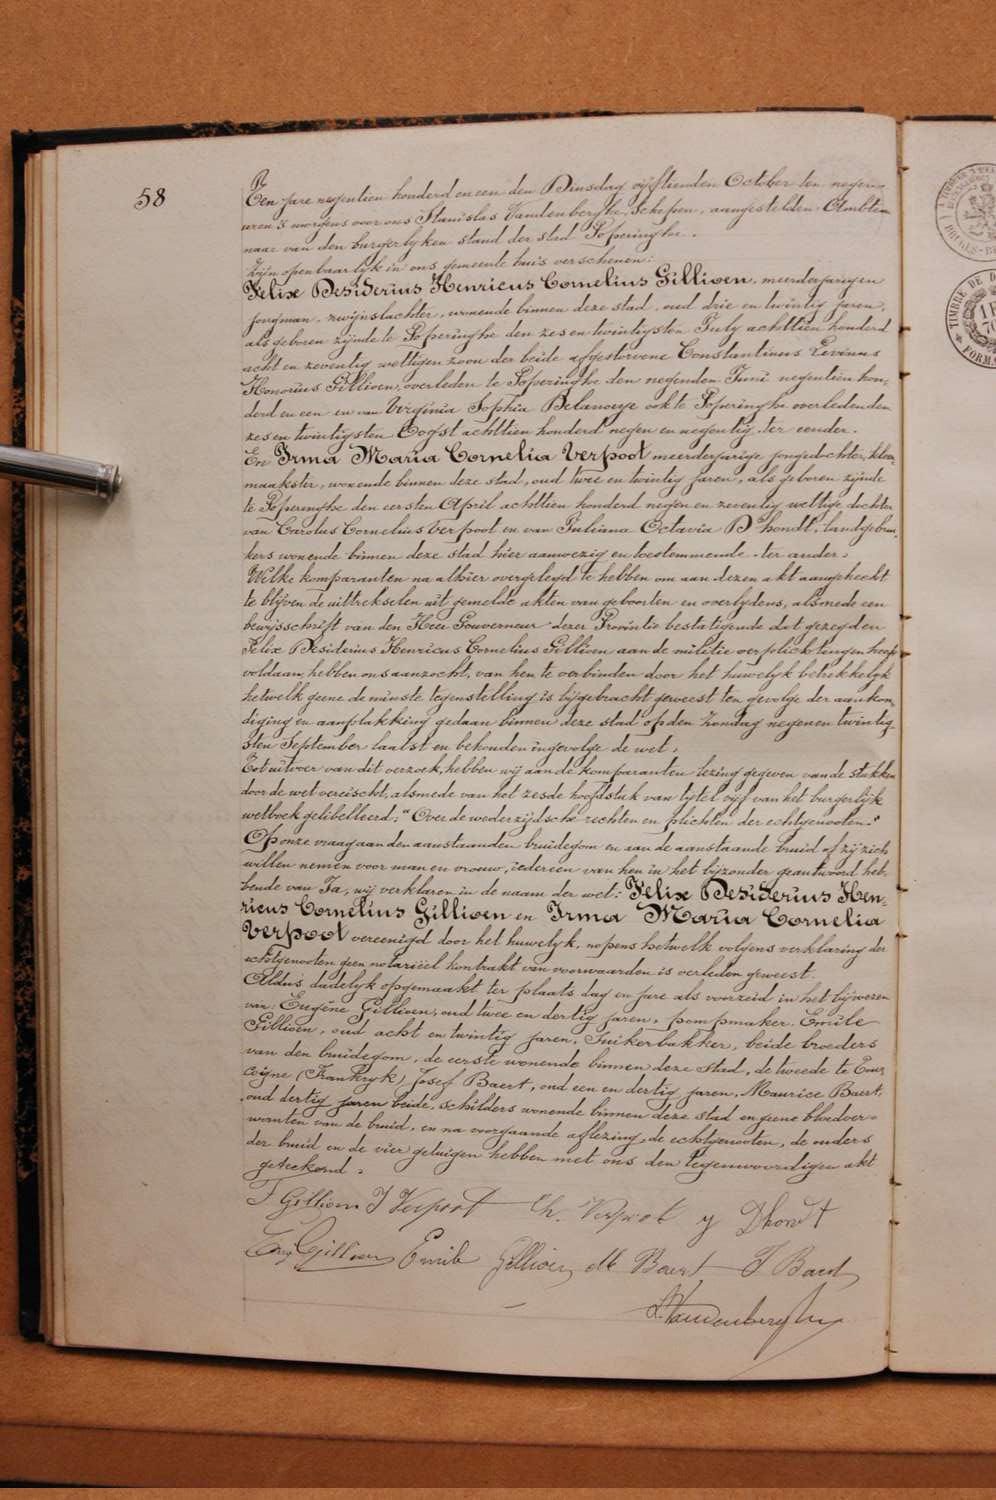 58
Ten jare negentien honderd en een den Dinsdag vijftienden October ten negen
uren 's morgens voor ons Stanislas Vandenberghe, Schepen, aangestelden Ambten
naar van den burgerlyken stand der stad Poperinghe.
Zijn openbaarlyk in ons gemeente huis verschenen:
Felix Desiderius Henricus Cornelius Gillioen, meerderjarigen
jongman, zwijnslachter, wonende binnen deze stad, oud drie en twintig jaren,
als geboren zijnde te Poperinghe den zes en twintigsten July achttien honderd
acht en zeventig wettigen zoon der beide afgestorvene Constantinus Levinus
Honorius Gillioen, overleden te Poperinghe den negenden Juni negentien hon-
derd en een en van Virginia Sophia Delanoye ook te Poperinghe overleden den
zes en twintigsten Oogst achttien honderd negen en negentig. ter eender.
En Irma Maria Cornelia Verpoot meerderjarige jongedochter, kleer-
maakster, wonende binnen deze stad, oud twee en twintig jaren, als geboren zijnde
te Poperinghe den eersten April achttien honderd negen en zeventig wettige dochter
van Carolus Cornelius Verpoot en van Juliana Octavia D'hondt, landgebrui-
kers wonende binnen deze stad hier aanwezig en toestemmende. ter ander.
Welke komparanten na alhier overgelegd te hebben om aan dezen akt aangehecht
te blijven de uittrekselen uit gemelde akten van geboorten en overlydens, alsmede een
bewijsschrift van den Heer Gouverneur dezer Provintie bestatigende dat gezegden
Felix Desiderius Henricus Cornelius Gillioen aan de militie verplichtingen heeft
voldaan, hebben ons aanzocht, van hen te verbinden door het huwelyk betrekkelyk
hetwelk geene de minste tegenstelling is bijgebracht geweest ten gevolge der aankon-
diging en aanplakking gedaan binnen deze stad op den Zondag negen en twintig-
sten September laatst en behouden ingevolge de wet.
Tot uitvoer van dit verzoek, hebben wij aan de komparanten lezing gegeven van de stukken
door de wet vereischt, alsmede van het zesde hoofdstuk van tytel vijf van het burgerlijk
wetboek gelibelleerd: "Over de wederzijdsche rechten en plichten der echtgenooten."
Op onze vraag aan den aanstaanden bruidegom en aan de aanstaande bruid of zij zich
willen nemen voor man en vrouw, iedereen van hen in het bijzonder geantwoord heb-
bende van Ja, wij verklaren in de naam der wet: Felix Desiderius Hen-
ricus Cornelius Gillioen en Irma Maria Cornelia
Verpoot vereenigd door het huwelyk, nopens hetwelk volgens verklaring der
echtgenooten geen notariëel kontrakt van voorwaarden is verleden geweest.
Aldus dadelyk opgemaakt ter plaats, dag en jare als voorzeid, in het bijwezen
van: Eugène Gillioen, oud twee en dertig jaren, pompmaker, Emile
Gillioen, oud acht en twintig jaren, Suikerbakker, beide broeders
van den bruidegom, de eerste wonende binnen deze stad, de tweede te Tour
coigne (Frankryk) Josef Baert, oud een en dertig jaren, Maurice Baert,
oud dertig jaren beide, schilders wonende binnen deze stad en geene bloedver-
wanten van de bruid, en na voorgaande aflezing, de echtgenooten, de ouders
der bruid en de vier getuigen hebben met ons den tegenwoordigen akt
geteekend.
F Gillioen I Verpoot Ch. Verpoot J Dhondt
Eug Gillioen Emile Gillioen M Baert J Baert
S. Vandenberghe
TIMBRE DE D
1 F
FORM